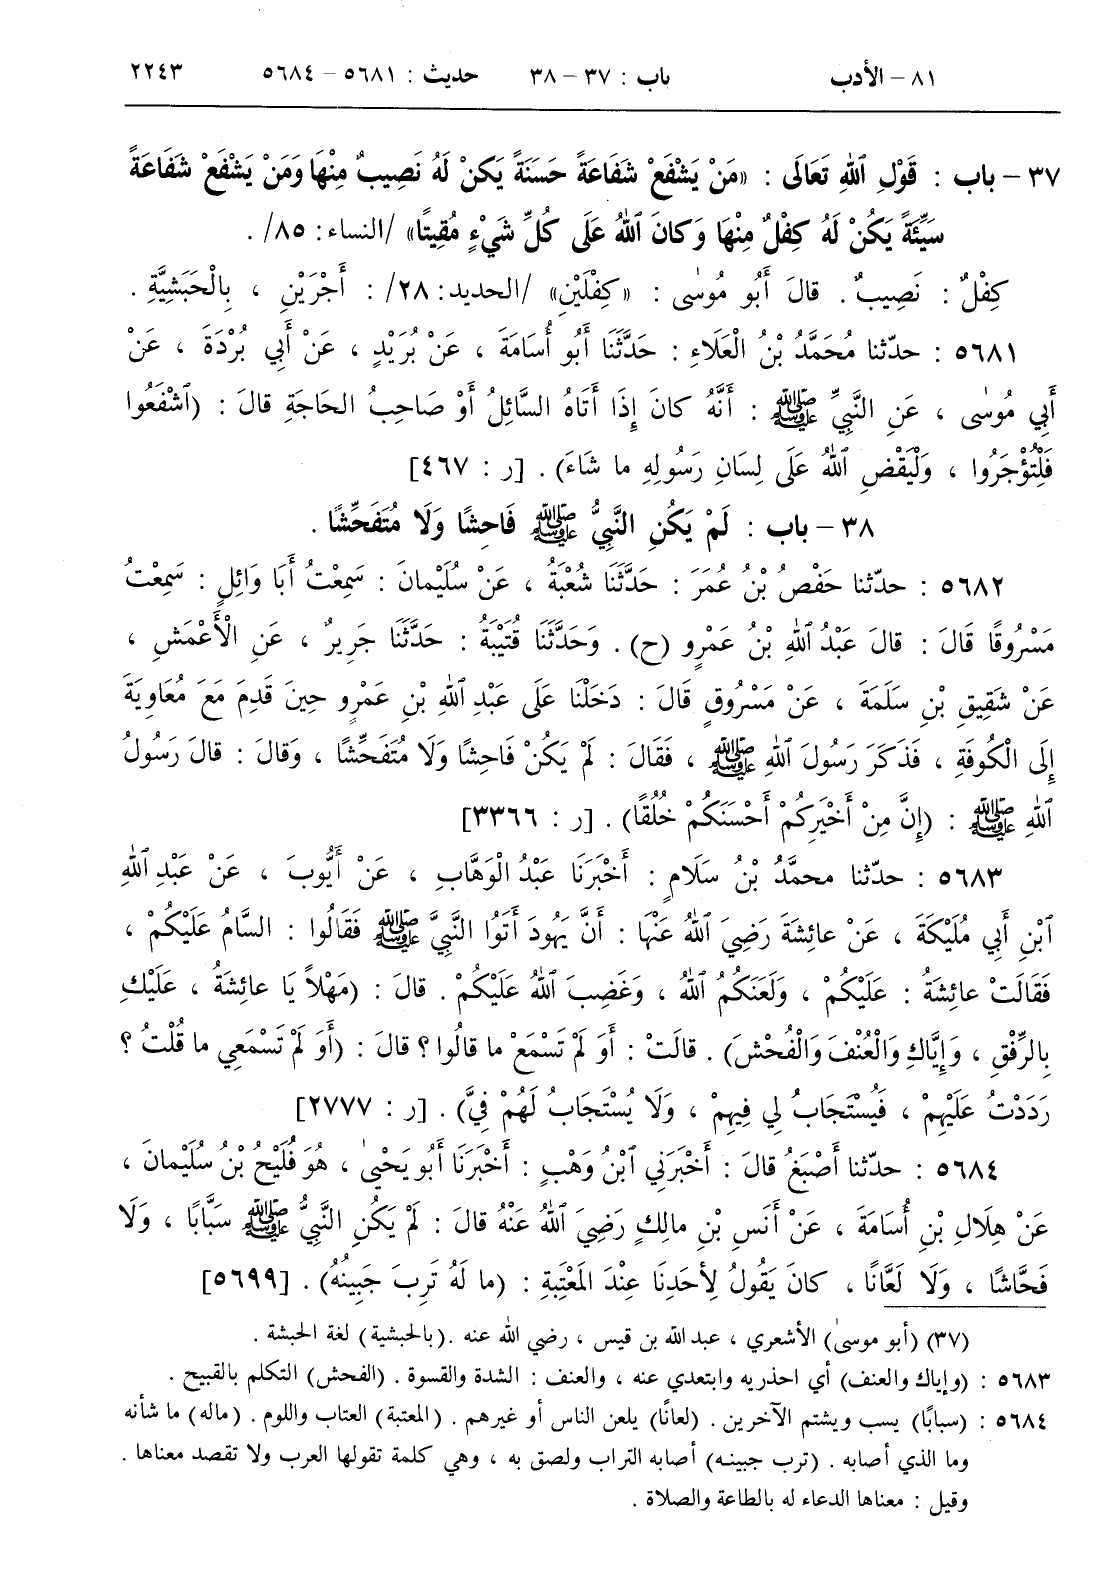 ٨١ – الأدب باب : ٣٧ – ٣٨ حديث : ٥٦٨١ – ٥٦٨٤ ٢٢٤٣
٣٧ – باب : قَوْلِ ٱللهِ تَعَالَى : «مَنْ يَشْفَعْ شَفَاعَةً حَسَنَةً يَكنْ لَهُ نَصِيبٌ مِنْهَا وَمَنْ يَشْفَعْ شَفَاعَةً
سَيِّئَةً يَكُنْ لَهُ كِفْلٌ مِنْهَا وَكانَ ٱللهُ عَلَى كُلِّ شَيْءٍ مُقِيتًا» /النساء: ٨٥/ .
كِفْلٌ : نَصِيبٌ . قالَ أَبُو مُوسٰى : «كِفْلَيْنِ» /الحديد: ٢٨/ : أَجْرَيْنِ ، بِالْحَبَشِيَّةِ .
٥٦٨١ : حدّثنا مُحَمَّدُ بْنُ الْعَلَاءِ : حَدَّثَنَا أَبُو أُسَامَةَ ، عَنْ بُرَيْدٍ ، عَنْ أَبِي بُرْدَةَ ، عَنْ
أَبِي مُوسٰى ، عَنِ النَّبِيِّ ﷺ : أَنَّهُ كانَ إِذَا أَتَاهُ السَّائِلُ أَوْ صَاحِبُ الحَاجَةِ قالَ : (ٱشْفَعُوا
فَلْتُؤْجَرُوا ، وَلْيَقْضِ ٱللهُ عَلَى لِسَانِ رَسُولِهِ ما شَاءَ) . [ر : ٤٦٧]
٣٨ – باب : لَمْ يَكُنِ النَّبِيُّ ﷺ فَاحِشًا وَلَا مُتَفَحِّشًا .
٥٦٨٢ : حدّثنا حَفْصُ بْنُ عُمَرَ : حَدَّثَنَا شُعْبَةُ ، عَنْ سُلَيْمانَ : سَمِعْتُ أَبَا وَائِلٍ : سَمِعْتُ
مَسْرُوقًا قَالَ : قالَ عَبْدُ ٱللهِ بْنُ عَمْرٍو (ح) . وَحَدَّثَنَا قُتَيْبَةُ : حَدَّثَنَا جَرِيرٌ ، عَنِ الْأَعْمَشِ ،
عَنْ شَقِيقِ بْنِ سَلَمَةَ ، عَنْ مَسْرُوقٍ قَالَ : دَخَلْنَا عَلَى عَبْدِ ٱللهِ بْنِ عَمْرٍو حِينَ قَدِمَ مَعَ مُعَاوِيَةَ
إِلَى الْكُوفَةِ ، فَذَكَرَ رَسُولَ ٱللهِ ﷺ ، فَقَالَ : لَمْ يَكُنْ فَاحِشًا وَلَا مُتَفَحِّشًا ، وَقالَ : قالَ رَسُولُ
ٱللهِ ﷺ : (إِنَّ مِنْ أَخْيَرِكُمْ أَحْسَنَكُمْ خُلُقًا) . [ر : ٣٣٦٦]
٥٦٨٣ : حدّثنا محمَّدُ بْنُ سَلَامٍ : أَخْبَرَنَا عَبْدُ الْوَهَّابِ ، عَنْ أَيُّوبَ ، عَنْ عَبْدِ ٱللهِ
ٱبْنِ أَبِي مُلَيْكَةَ ، عَنْ عائِشَةَ رَضِيَ ٱللهُ عَنْهَا : أَنَّ يَهُودَ أَتَوُا النَّبِيَّ ﷺ فَقَالُوا : السَّامُ عَلَيْكُمْ ،
فَقَالَتْ عائِشَةُ : عَلَيْكُمْ ، وَلَعَنَكُمُ ٱللهُ ، وَغَضِبَ ٱللهُ عَلَيْكُمْ . قالَ : (مَهْلاً يَا عائِشَةُ ، عَلَيْكِ
بِالرِّفْقِ ، وَإِيَّاكِ وَالْعُنْفَ وَالْفُحْشَ) . قالَتْ : أَوَ لَمْ تَسْمَعْ ما قالُوا ؟ قالَ : (أَوَ لَمْ تَسْمَعِي ما قُلْتُ ؟
رَدَدْتُ عَلَيْهِمْ ، فَيُسْتَجَابُ لِي فِيهِمْ ، وَلَا يُسْتَجَابُ لَهُمْ فِيَّ) . [ر : ٢٧٧٧]
٥٦٨٤ : حدّثنا أَصْبَغُ قالَ : أَخْبَرَنِي ٱبْنُ وَهْبٍ : أَخْبَرَنَا أَبُو يَحْيىٰ ، هُوَ فُلَيْحُ بْنُ سُلَيْمانَ ،
عَنْ هِلَالِ بْنِ أُسَامَةَ ، عَنْ أَنَسِ بْنِ مالِكٍ رَضِيَ ٱللهُ عَنْهُ قالَ : لَمْ يَكُنِ النَّبِيُّ ﷺ سَبَّابًا ، وَلَا
فَحَّاشًا ، وَلَا لَعَّانًا ، كانَ يَقُولُ لِأَحَدِنَا عِنْدَ المَعْتِبَةِ : (ما لَهُ تَرِبَ جَبِينُهُ) . [٥٦٩٩]
(٣٧) (أبو موسىٰ) الأشعري ، عبد الله بن قيس ، رضي الله عنه . (بالحبشية) لغة الحبشة .
٥٦٨٣ : (وإياك والعنف) أي احذريه وابتعدي عنه ، والعنف : الشدة والقسوة . (الفحش) التكلم بالقبيح .
٥٦٨٤ : (سبابًا) يسب ويشتم الآخرين . (لعانًا) يلعن الناس أو غيرهم . (المعتبة) العتاب واللوم . (ماله) ما شأنه
وما الذي أصابه . (ترب جبينه) أصابه التراب ولصق به ، وهي كلمة تقولها العرب ولا تقصد معناها .
وقيل : معناها الدعاء له بالطاعة والصلاة .